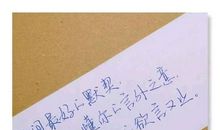 间最好的默契,
懂你的言外之意
欲言又止。